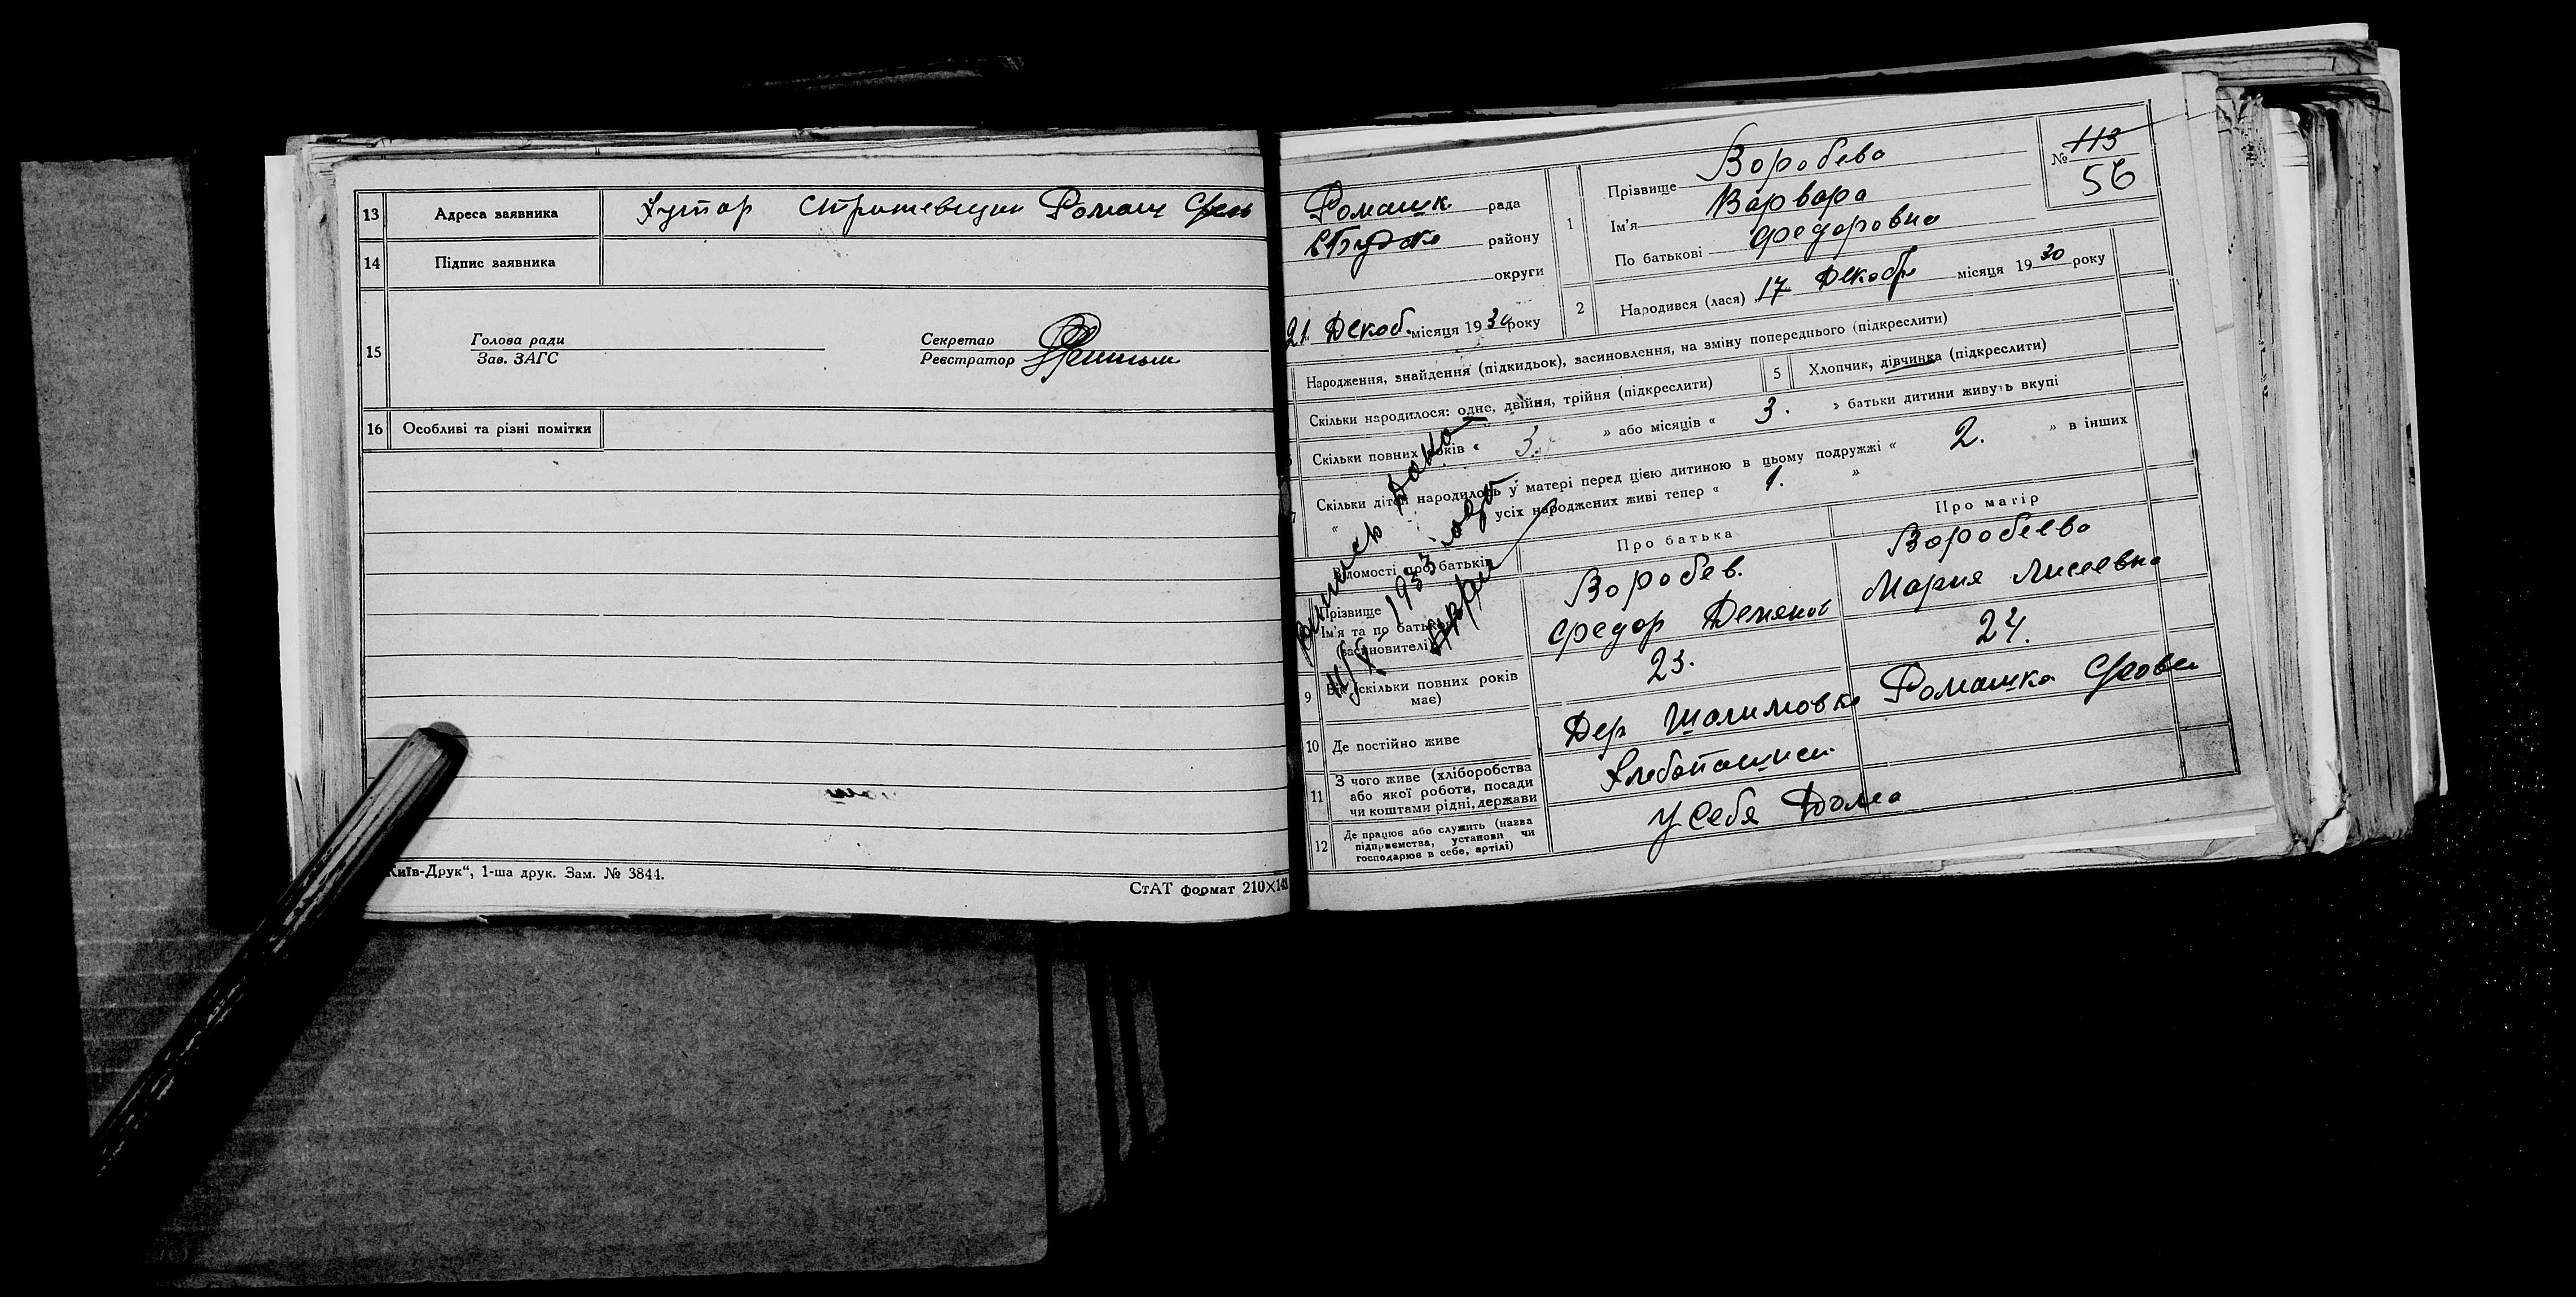 13 Адреса заявника Хутор Ромаш
14 Підпис заявника
15 Голова ради
Зав. ЗАГС
Секретар
Реєстратор
16 Особливі та різні помітки
Київ-Друк“, 1-ша друк. Зам. № 3844.
СтАТ формат 210×148
Ромашк. рада
району
округи
21 Декаб. місяця 1930 року
№ 113
56
1 Прізвище Воробева
Ім'я Варвара
По батькові Федоровна
2 Народився (лася) 17 Декабр місяця 1930 року
Народження, знайдення (підкидьок), засиновлення, на зміну попереднього (підкреслити)
Скільки народилося: одне, двійня, трійня (підкреслити) 5 Хлопчик, дівчинка (підкреслити)
Скільки повних років « 3. » або місяців « 3. » батьки дитини живуть вкупі
7 Скільки дітей народилось у матері перед цією дитиною в цьому подружжі « 2. » в інших
« усіх народжених живі тепер « 1. »
Відомості про батьків Про батька Про матір
Прізвище Воробев. Воробеева
Ім'я та по батькові Федор Мария
(засиновителі)
9 Вік (скільки повних років має) 23. 24.
10 Де постійно живе Дер Шалимовка Ромашка
11 З чого живе (хліборобства або якої роботи, посади чи коштами рідні, держави
12 Де працює або служить (назва підприємства, установи чи господарює в себе, артілі) У себя Дома
1933